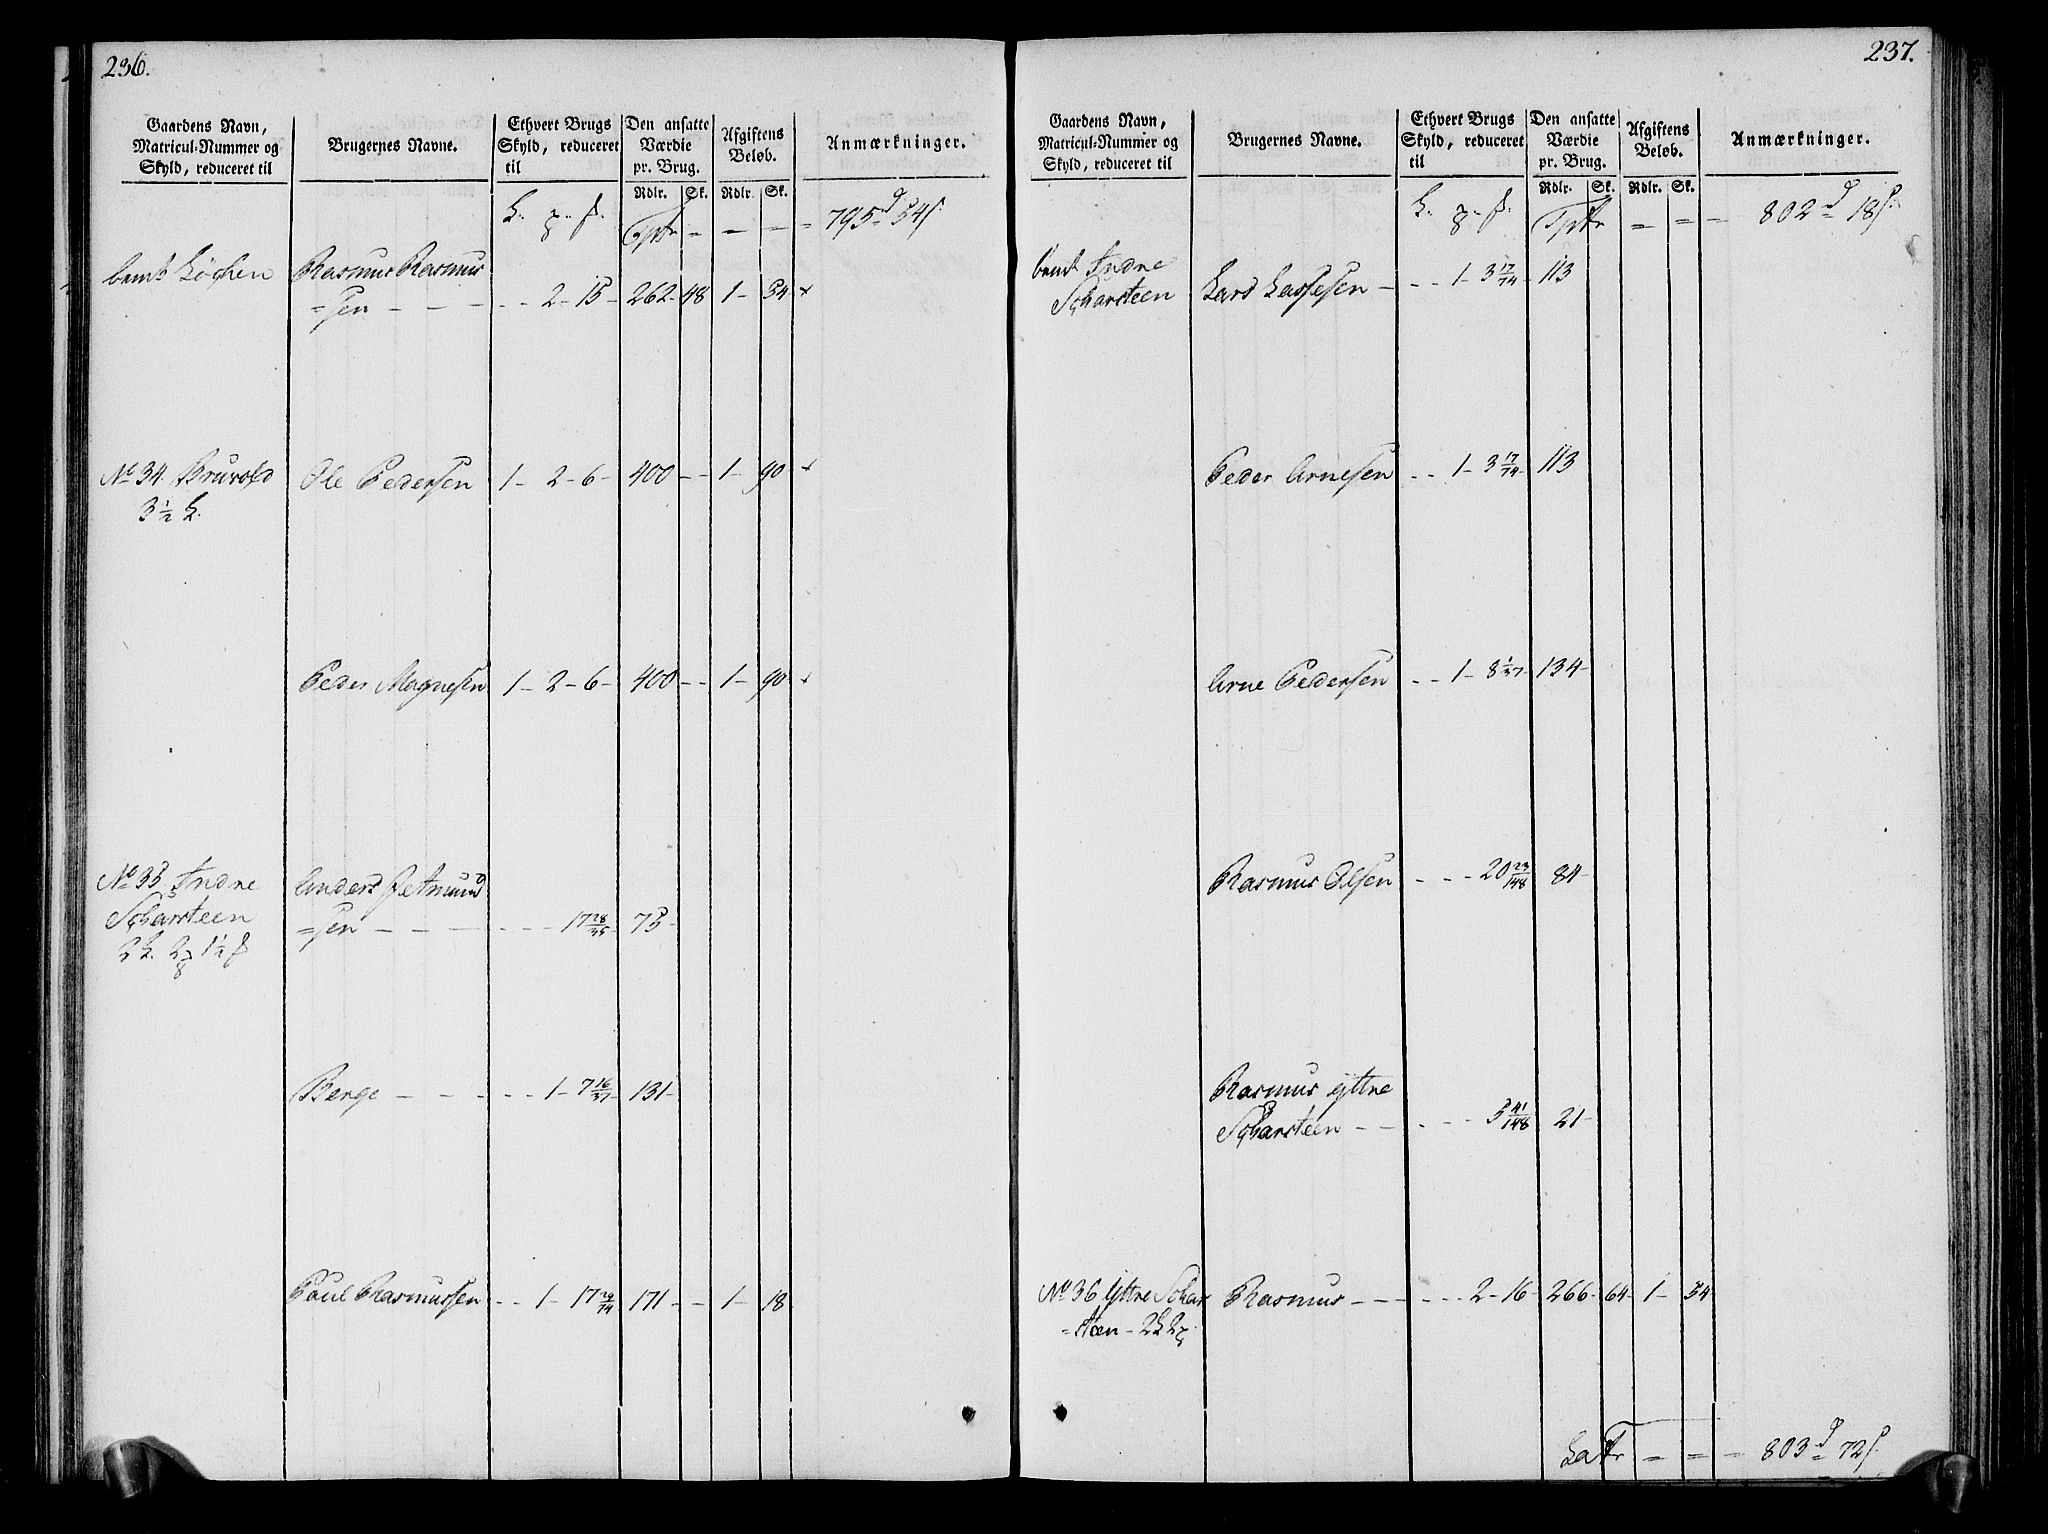 236.
Gaardens Navn,
Matricul-Nummer og
Skyld, reduceret til
Brugernes Navne.
Ethvert Brugs
Skyld, reduceret
til
Den ansatte
Værdie
pr. Brug.
Afgiftens
Beløb.
Anmærkninger.
Rdlr. Sk. Rdlr. Sk.
Tptr - - - = 795 d 54 s.
bemt Løchen Rasmus Rasmus
=sen - - - - - 2 - 15 - 262 - 48 1 - 34 x
No 34. Bruvold Ole Pedersen 1 - 2 - 6 - 400 - - 1 - 90 x
3 1/2 L.
Peder Magnesen 1 - 2 - 6 - 400 - - 1 - 90 x
No 35 Indre Anders
Scharsteen =sen - - - - - - 17 28/45 - 75 -
2 L. 2 1 1/2
Berge - - - - - 1 - 7 16/37 - 131 -
Poul Rasmussen - - 1 - 17 29/74 171 - - 1 - 18
237.
Gaardens Navn,
Matricul-Nummer og
Skyld, reduceret til
Brugernes Navne.
Ethvert Brugs
Skyld, reduceret
til
Den ansatte
Værdie
pr. Brug.
Afgiftens
Beløb.
Anmærkninger.
Rdlr. Sk. Rdlr. Sk.
Tptr - = = - 802 d 18 s.
bemt Indre
Scharsteen Lars Lassesen - - - 1 - 3 17/74 - 113
Peder Arnesen - - 1 - 3 17/74 - 113
Arne Pedersen - - 1 - 8 1/37 - 134 -
Rasmus Olsen - - - 20 23/148 84 -
Rasmus ÿttre
Scharsteen - - - - - 5 41/148 21 -
No 36 Yttre Schar Rasmus - - - - - 2 - 16 - 266 - 64 - 1 - 34
=steen - 2 L 2
Latr - = = - 803 d 72 s.